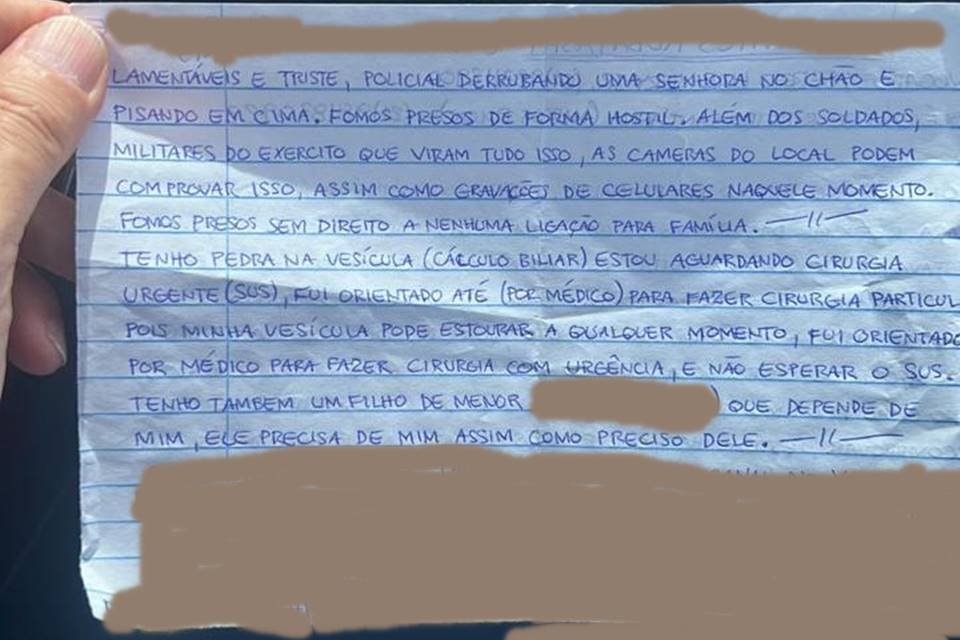 LAMENTÁVEIS E TRISTE, POLICIAL DERRUBANDO UMA SENHORA NO CHÃO E
PISANDO EM CIMA. FOMOS PRESOS DE FORMA HOSTIL. ALÉM DOS SOLDADOS,
MILITARES DO EXERCITO QUE VIRAM TUDO ISSO, AS CAMERAS DO LOCAL PODEM
COMPROVAR ISSO, ASSIM COMO GRAVAÇÕES DE CELULARES NAQUELE MOMENTO.
FOMOS PRESOS SEM DIREITO A NENHUMA LIGAÇÃO PARA FAMÍLIA. —//—
TENHO PEDRA NA VESÍCULA (CÁLCULO BILIAR) ESTOU AGUARDANDO CIRURGIA
URGENTE (SUS), FUI ORIENTADO ATÉ (POR MÉDICO) PARA FAZER CIRURGIA PARTICUL
POIS MINHA VESÍCULA PODE ESTOURAR A QUALQUER MOMENTO, FUI ORIENTADO
POR MÉDICO PARA FAZER CIRURGIA COM URGÊNCIA, E NÃO ESPERAR O SUS.
TENHO TAMBEM UM FILHO DE MENOR ) QUE DEPENDE DE
MIM, ELE PRECISA DE MIM ASSIM COMO PRECISO DELE. —//—